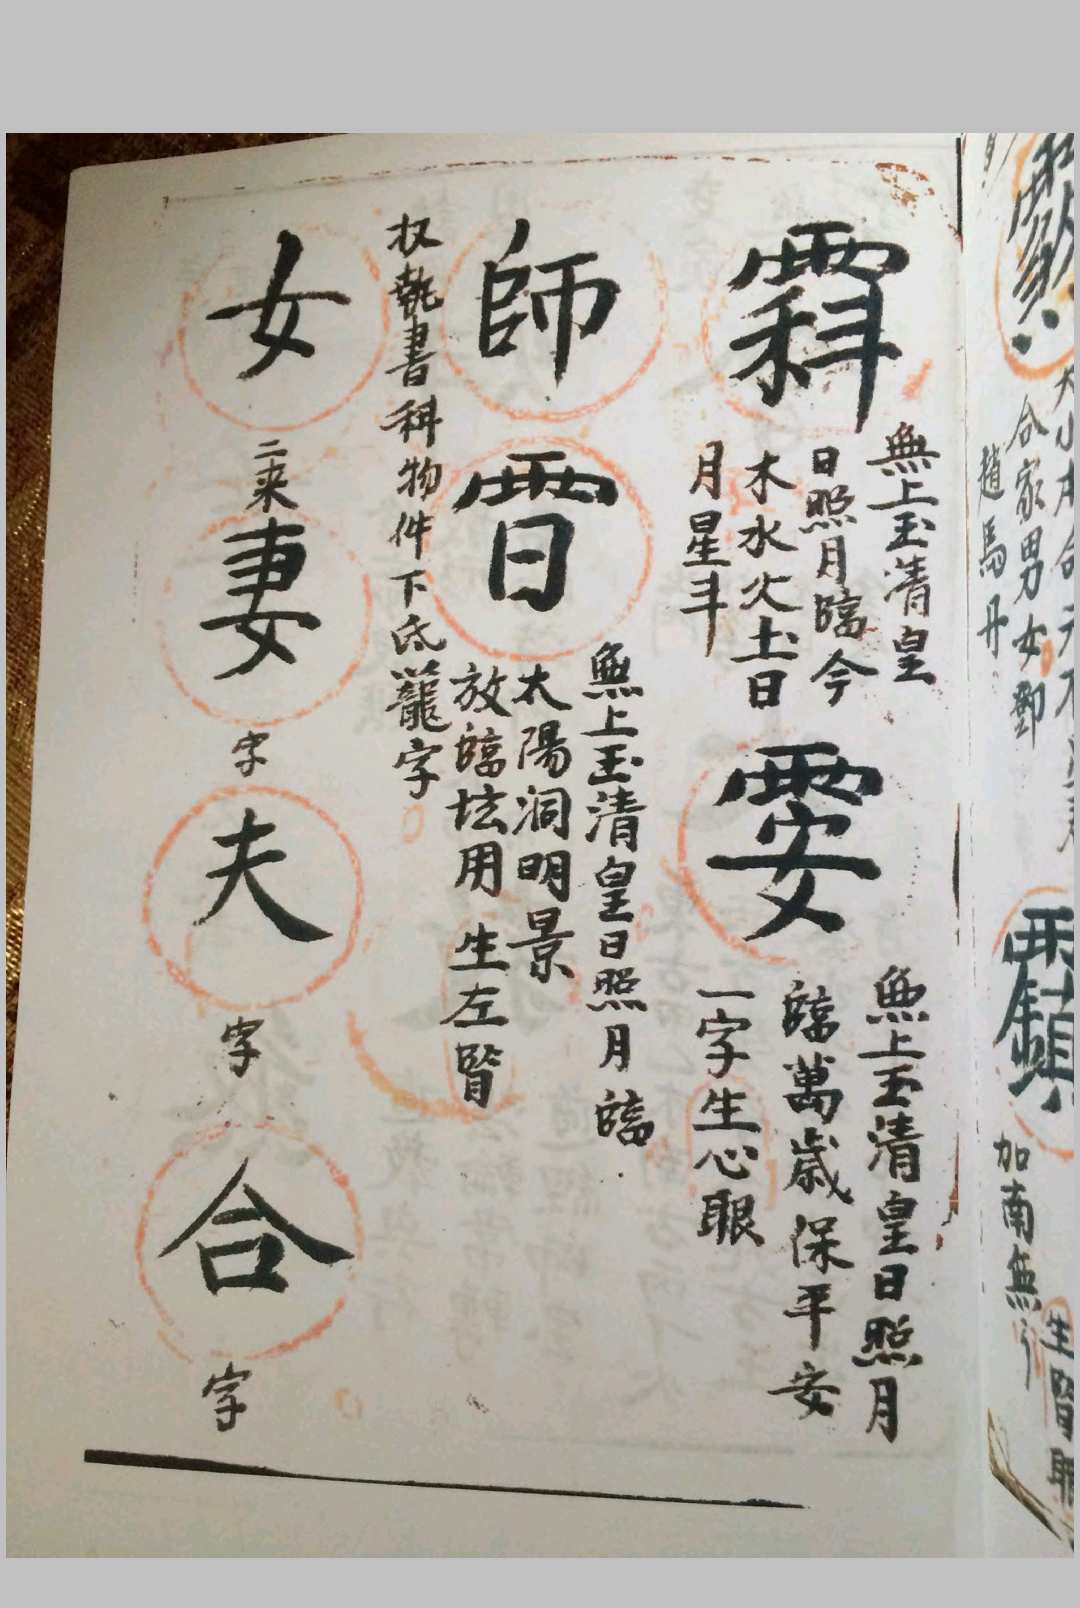 無上玉清皇
日照月臨今
木水火土日
月星斗
無上玉清皇日照月
臨萬歲保平安
一字生心眼
師
無上玉清皇日照月臨
太陽洞明景
放臨坛用生左腎
权執書科物件下底籠字
女
二来
妻
字
夫
字
合
字
合家男女鄧
趙馬丹
加南無
生腎眼